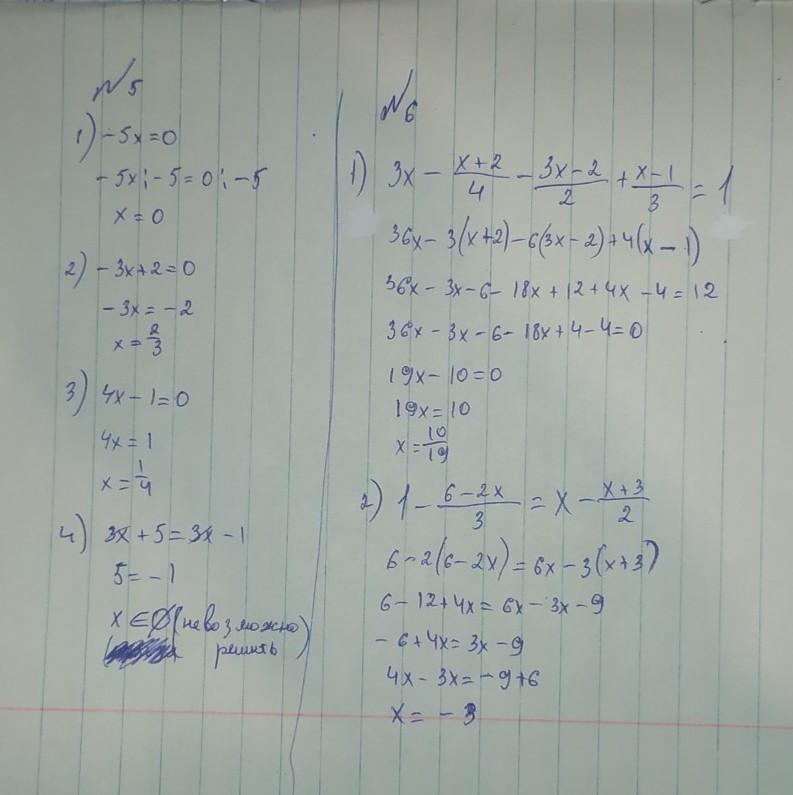 №5
1) -5x=0
-5x:-5=0:-5
x=0
2) -3x+2=0
-3x=-2
x=2/3
3) 4x-1=0
4x=1
x=1/4
4) 3x+5=3x-1
5=-1
x∈∅(невозможно
решить)
№6
1) 3x - (x+2)/4 - (3x-2)/2 + (x-1)/3 = 1
36x-3(x+2)-6(3x-2)+4(x-1)
36x-3x-6-18x+12+4x-4=12
36x-3x-6-18x+4-4=0
19x-10=0
19x=10
x=10/19
2) 1 - (6-2x)/3 = x - (x+3)/2
6-2(6-2x)=6x-3(x+3)
6-12+4x=6x-3x-9
-6+4x=3x-9
4x-3x=-9+6
x=-3